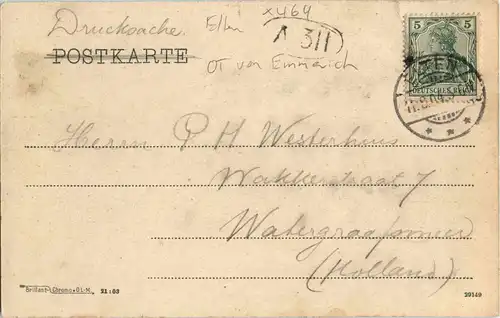 Drucksache
Elten
x469
A 311
POSTKARTE
OT von Emmerich
5
DEUTSCHES REICH
Herrn P H Westerhuis
Wakkerstraat 7
Watergraafsmeer
(Holland)
Brillant-Chromo-O.L.-M. 21:03
29149